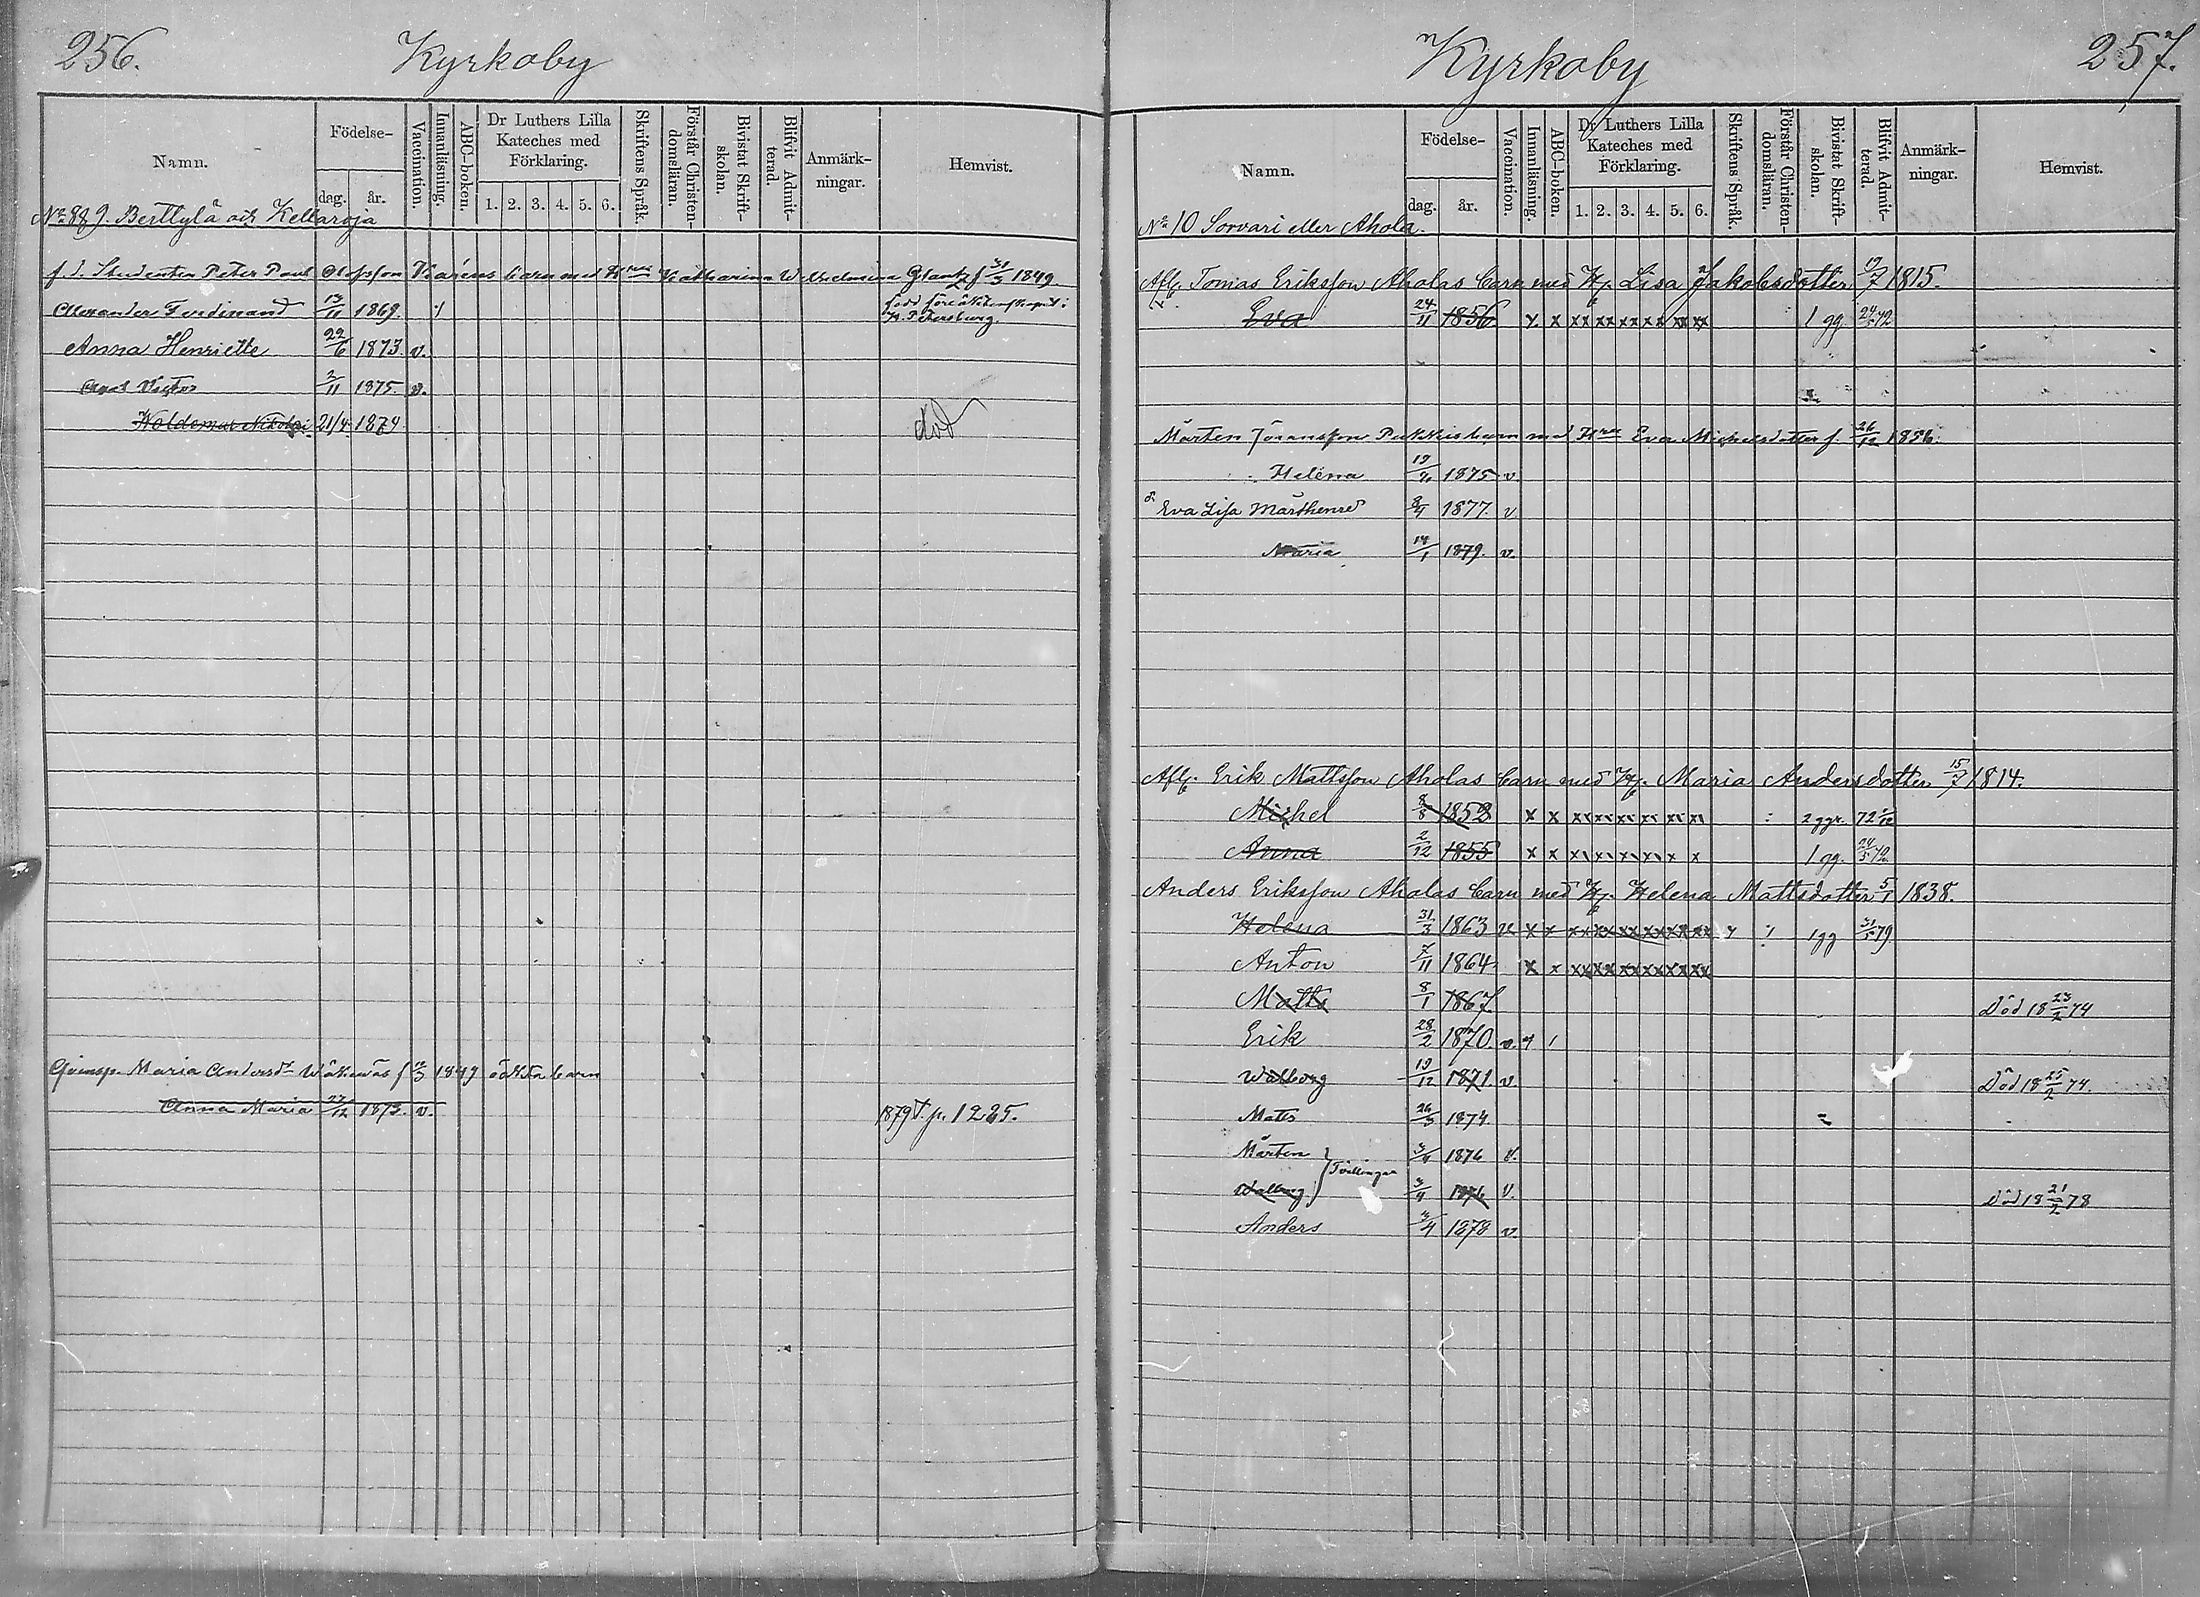 256.
Kyrkoby
Namn.
Födelse-
dag.
år.
Vaccination.
Innanläsning.
ABC-boken.
Dr Luthers Lilla Kateches med Förklaring.
1. 2. 3. 4. 5. 6.
Skriftens Språk.
Förstår Christendomsläran.
Bivistat Skriftskolan.
Blifvit Admitterad.
Anmärkningar.
Hemvist.
No 8 & 9. Berttylä och Kellaroja
f. d. Studenten Peter Paul Olofsson barn med Hru Katharina Wilhelmina Glantz f 31/3 1849.
Alexander Ferdinand 13/11 1869. född före äktenskapet i St. Petersburg.
Anna Henriette 22/6 1873. v.
Axel Victor 2/11 1875. v.
Woldemar Nikolai 21/4 1879 död
Qvinsp. Maria Andersdr f 1849 oäkta barn
Anna Maria 27/12 1873. v. 1879 T. p. 1225.
257.
Kyrkoby
Namn.
Födelse-
dag.
år.
Vaccination.
Innanläsning.
ABC-boken.
Dr Luthers Lilla Kateches med Förklaring.
1. 2. 3. 4. 5. 6.
Skriftens Språk.
Förstår Christendomsläran.
Bivistat Skriftskolan.
Blifvit Admitterad.
Anmärkningar.
Hemvist.
No 10 Sorvari eller Ahola.
Afl. Tomas Eriksson Aholas barn med H. Lisa Jakobsdotter 19/7 1815.
Eva 24/11 1856 x x xx xx xx xx xx xx 1 gg. 24/5 72
Mårten Jöransson Pukkis barn med Hru Eva Michelsdotter f. 26/12 1856.
Helena 1875 v
Eva Lisa Mårthensd 8/4 1877. v
Maria 14/1 1879. v.
Afl. Erik Mattsson Aholas barn med H. Maria Andersdotter 15/7 1814.
Michel 8/8 1852 x x xx xx xx xx xx xx 2 ggr. 72
Anna 2/12 1855 x x xx xx xx xx x x 1 gg. 24/5 72
Anders Eriksson Aholas barn med H. Helena Mattsdotter 5/1 1838.
Helena 31/3 1863 v x x xx xx xx xx xx xx 1 gg 79
Anton 7/11 1864 x x xx xx xx xx xx xx
Matts 8/1 1867. Död 18 23/2 74
Erik 28/2 1870. v.
Walborg 19/12 1871 v. Död 18 25/2 74.
Matts 26/3 1874.
Mårten 3/4 1876 v. Tvillingar
Walborg 3/4 1876 v. Död 18 21/2 78
Anders 1878 v.